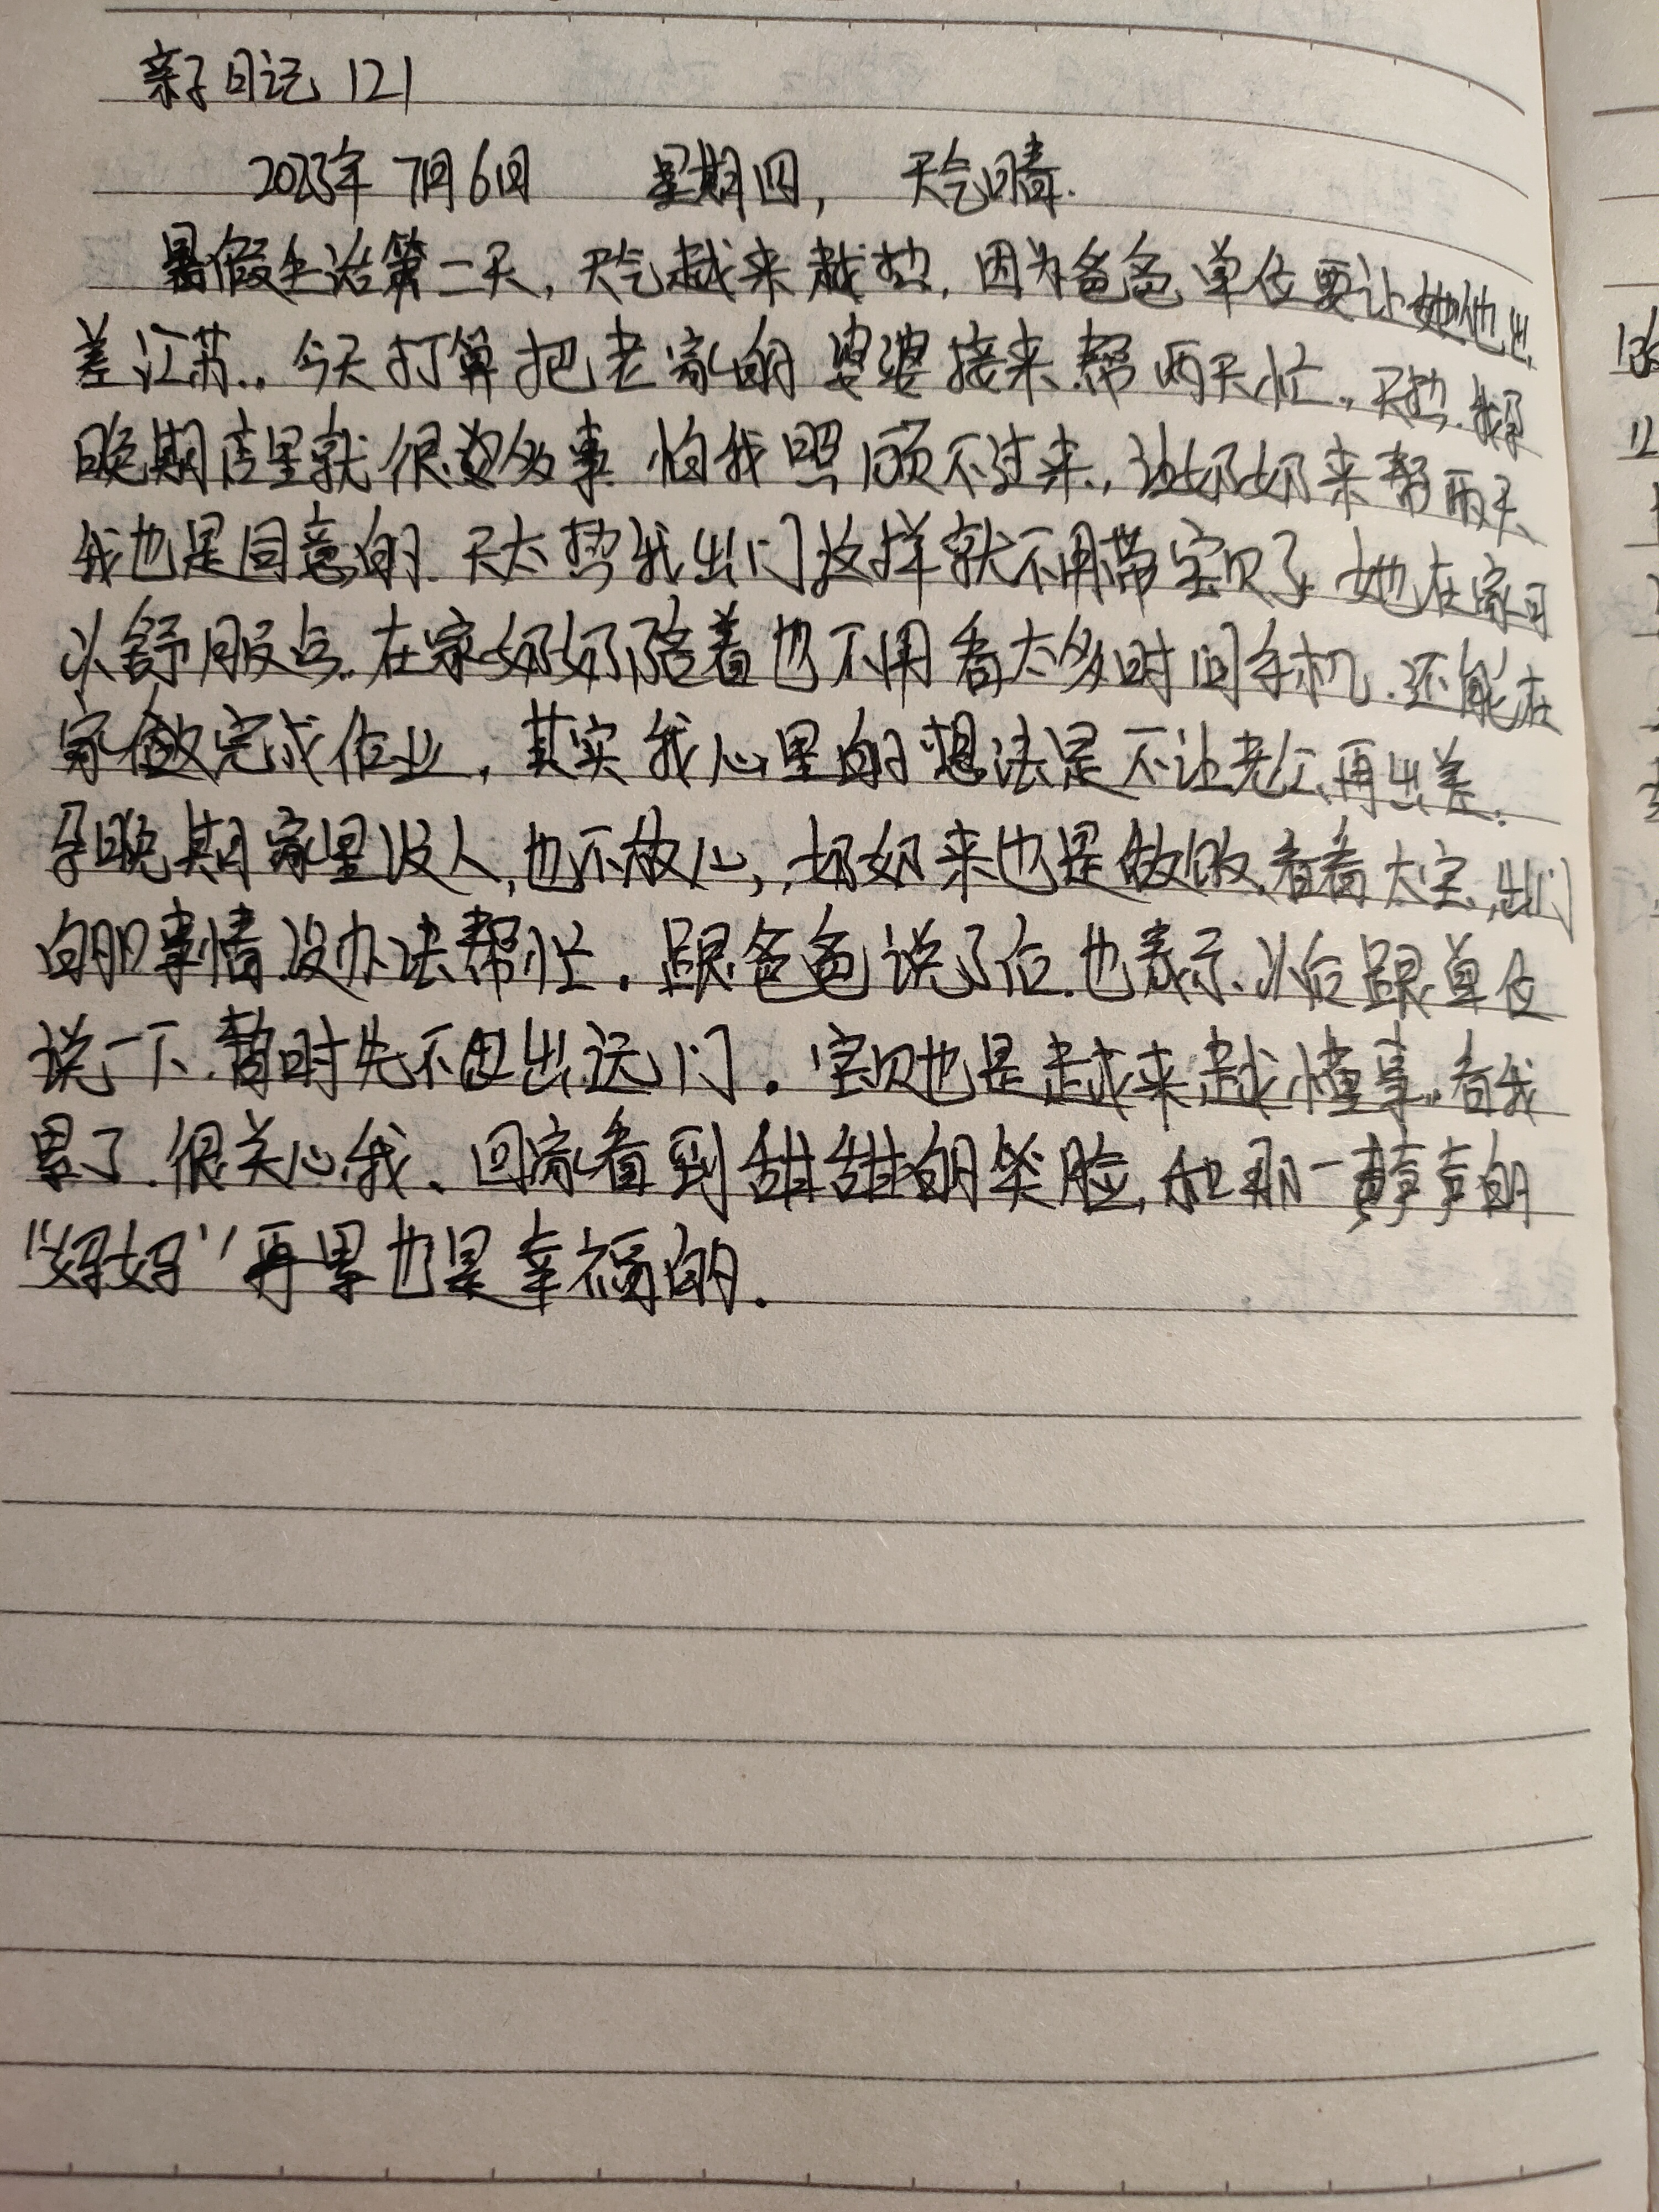 亲子日记 121
2023年 7月6日 星期四, 天气晴.
暑假生活第二天, 天气越来越热, 因为爸爸单位要让他出
差江苏., 今天打算把老家的婆婆接来帮两天忙., 天热.我孕
晚期店里就很多事 怕我照顾不过来., 让奶奶来帮两天
我也是同意的. 天太热我出门这样就不用带宝贝了 她在家可
以舒服点. 在家奶奶陪着也不用看太多时间手机. 还能在
家做完成作业, 其实我心里的想法是不让老公再出差.
孕晚期家里没人, 也不放心, 奶奶来也是做饭.看看大宝, 出门
的事情没办法帮忙. 跟爸爸说了后.也表示、以后跟单位
说一下.暂时先不出远门. 宝贝也是越来越懂事.看我
累了.很关心我、回家看到甜甜的笑脸, 和那一声声的
“妈妈”再累也是幸福的.